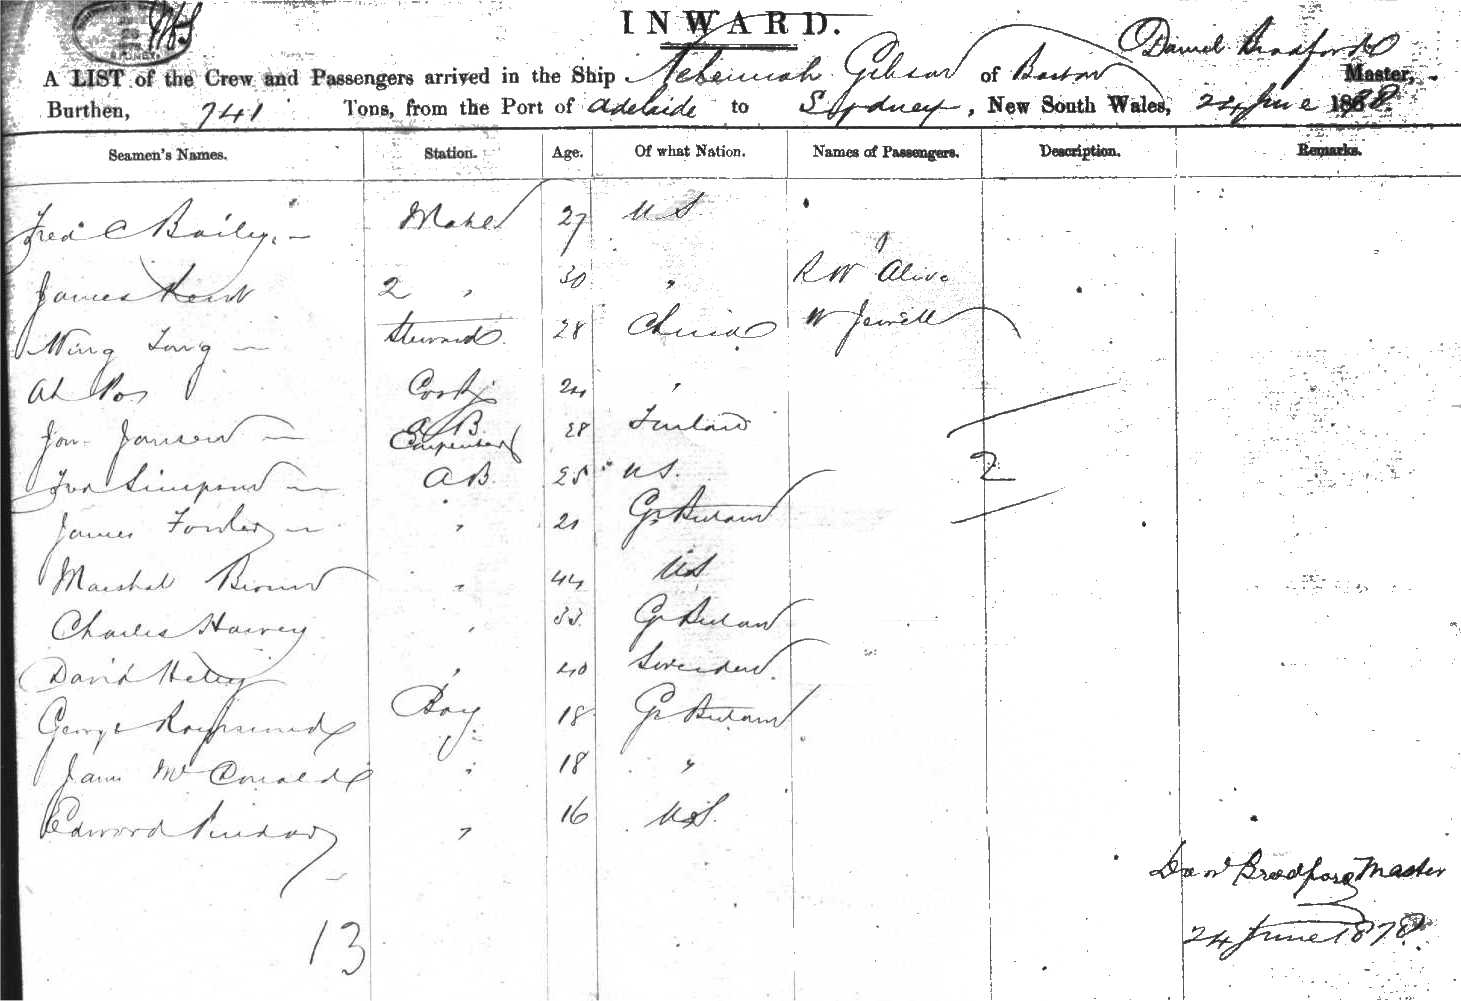 INWARD.
Daniel Bradford
A LIST of the Crew and Passengers arrived in the Ship Nehemiah Gibson of Boston Master,
Burthen, 741 Tons, from the Port of Adelaide to Sydney, New South Wales, 24 June 1878.
Seamen's Names. Station. Age. Of what Nation. Names of Passengers. Description. Remarks.
Fred C Baily. Mate 27 U S
James Kent 2 " 30 " R W Alive
Wing Tong Steward 28 China W Jewell
Ah Cook 24 "
Jansen A B Carpenter 28 Finland
Simpson A B. 25 U S. 2
James Fowler " 21 Gt Britain
Marshal Brown " 44 U S
Charles Harvey " 33 Gt Britain
David " 40 Sweden.
George Boy 18 Gt Britain
James McDonald " 18 "
Edward Pindar " 16 U S.
Danl Bradford Master
13
24 June 1878.